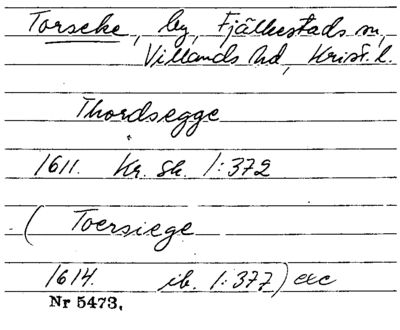 Torseke, by, Fjälkestads sn,
Villands hd, Krist. l.
Thordsegge
1611. Kr. Sk. 1:372
( Toersiege
1614. ib. 1:377) exc
Nr 5473.